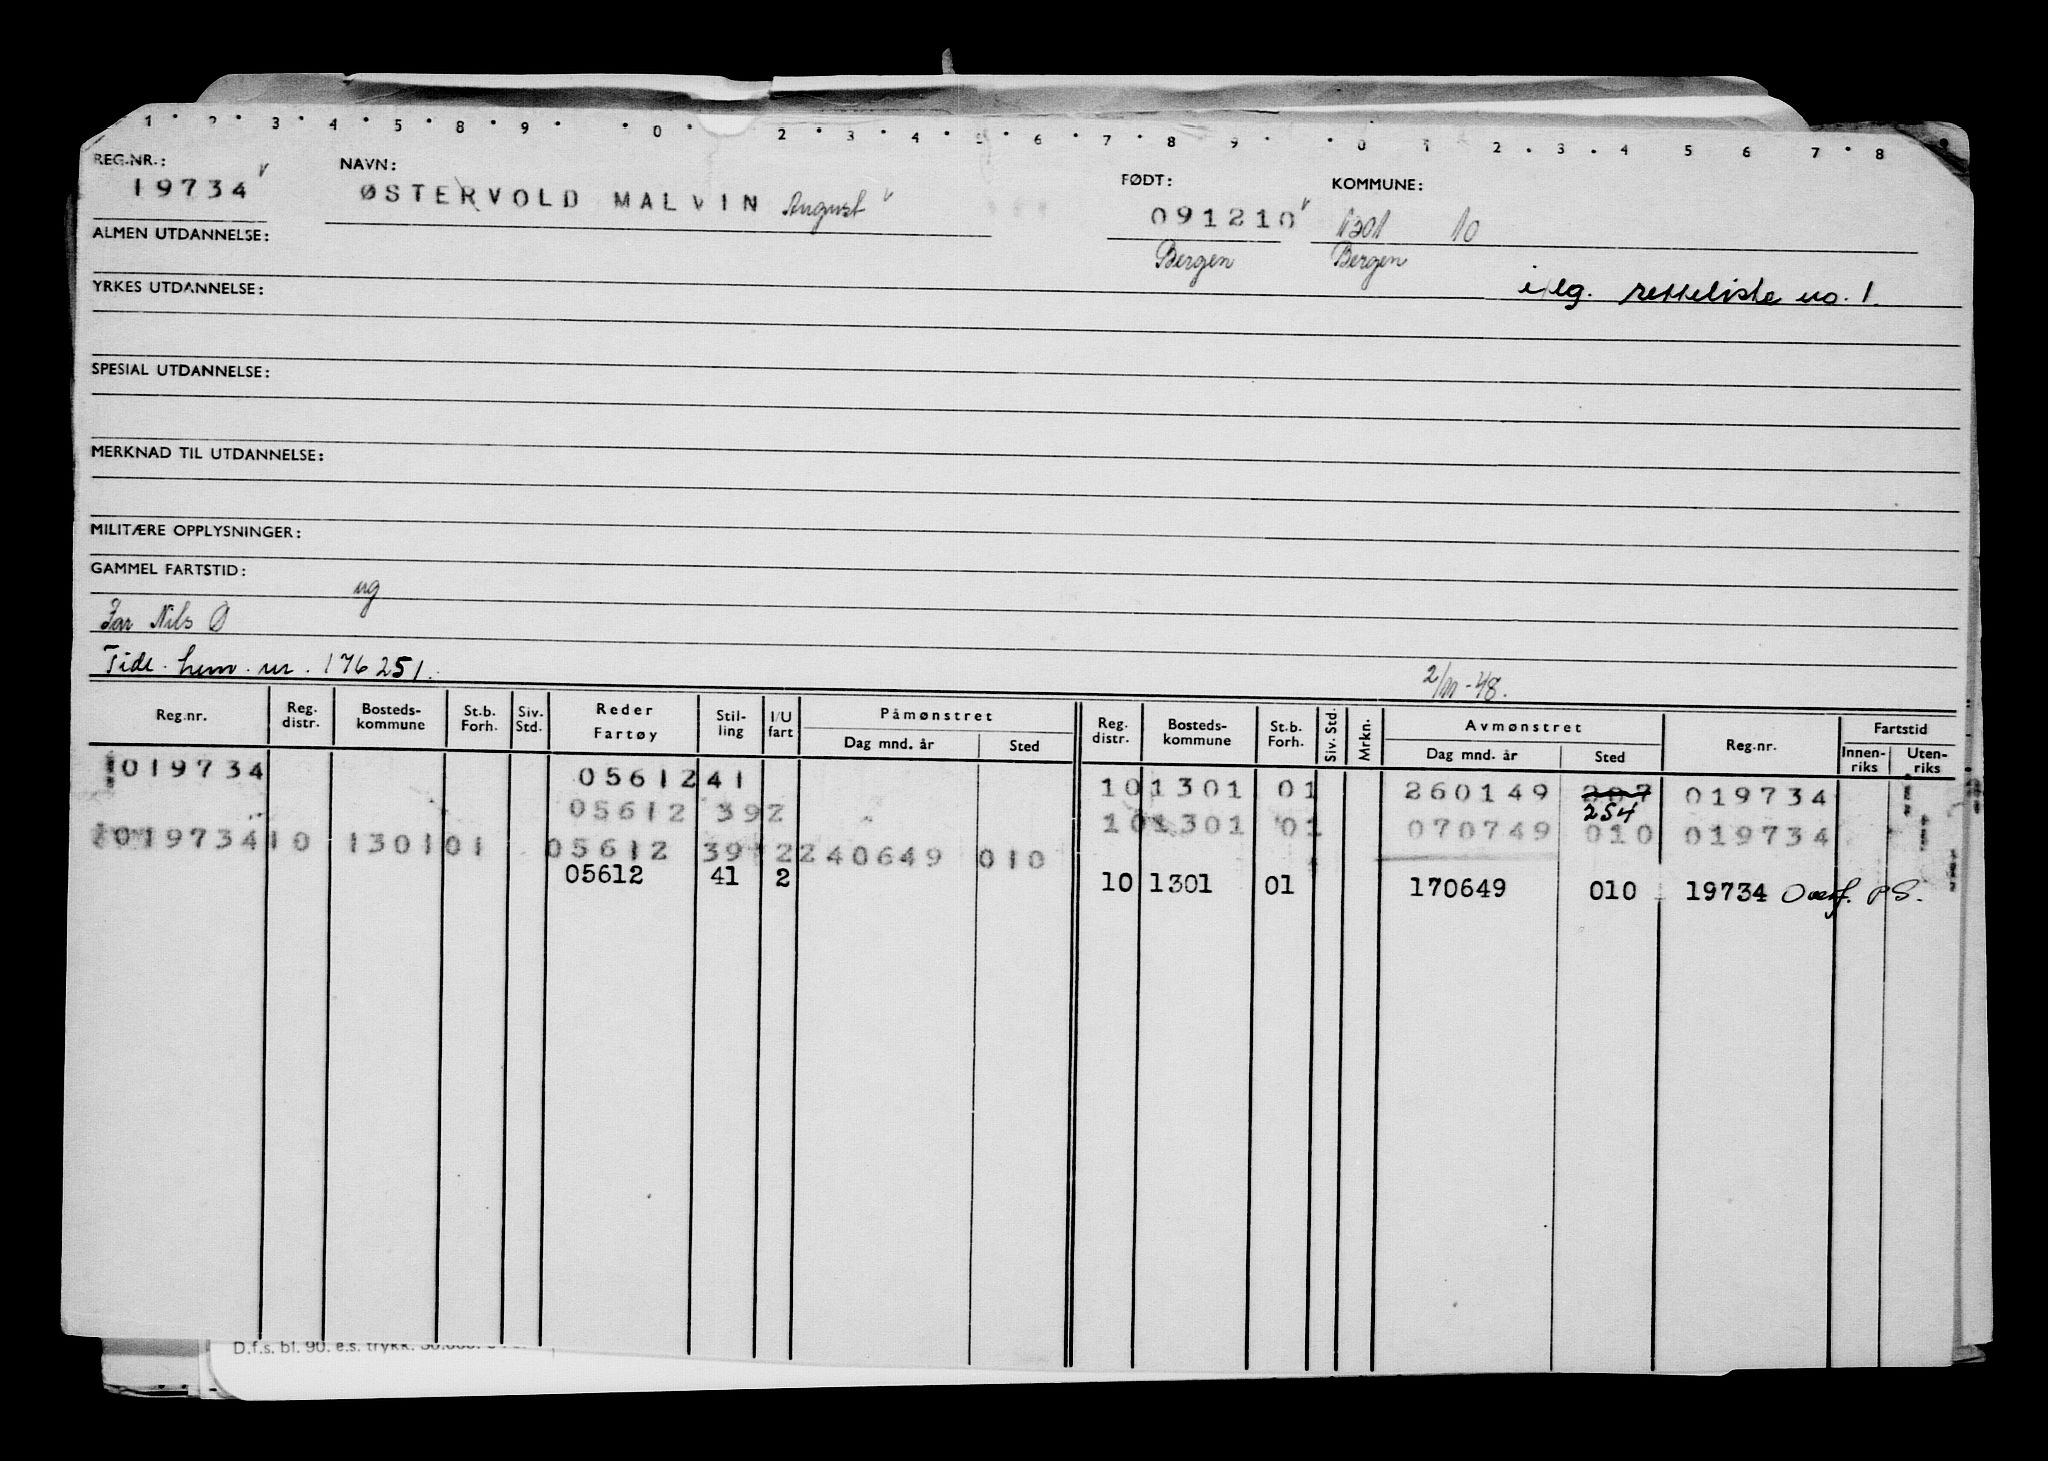 1 · 2 · 3 · 4 · 5 · 8 · 9 · · 0 · 2 · 3 · 4 · 5 · 6 · 7 · 8 · 9 · · 0 · 1 · 2 · 3 · 4 5 6 7 · 8
REG.NR.: NAVN: FØDT: KOMMUNE:
19734 v ØSTERVOLD MALVIN August v 091210 v 1301 10
ALMEN UTDANNELSE: Bergen Bergen
YRKES UTDANNELSE: iflg. retteliste no. 1.
SPESIAL UTDANNELSE:
MERKNAD TIL UTDANNELSE:
MILITÆRE OPPLYSNINGER:
GAMMEL FARTSTID: ug
Far Nils Ø
Tidl. hem. nr. 176251. 2/11-48.
Reg.nr. Reg. distr. Bosteds-kommune St.b. Forh. Siv. Std. Reder Fartøy Stil-ling I/U fart Påmønstret Dag mnd. år Sted Reg. distr. Bosteds-kommune St.b. Forh. Siv. Std. Mrkn. Avmønstret Dag mnd. år Sted Reg.nr. Fartstid Innen-riks Uten-riks
019734 05612 41 10 1301 01 260149 207 254 019734
05612 39 2 10 1301 01 070749 010 019734
019734 10 1301 01 05612 39 2 240649 010
05612 41 2 10 1301 01 170649 010 19734 Overf. PS.
D.f.s. bl. 90. e.s. trykk.